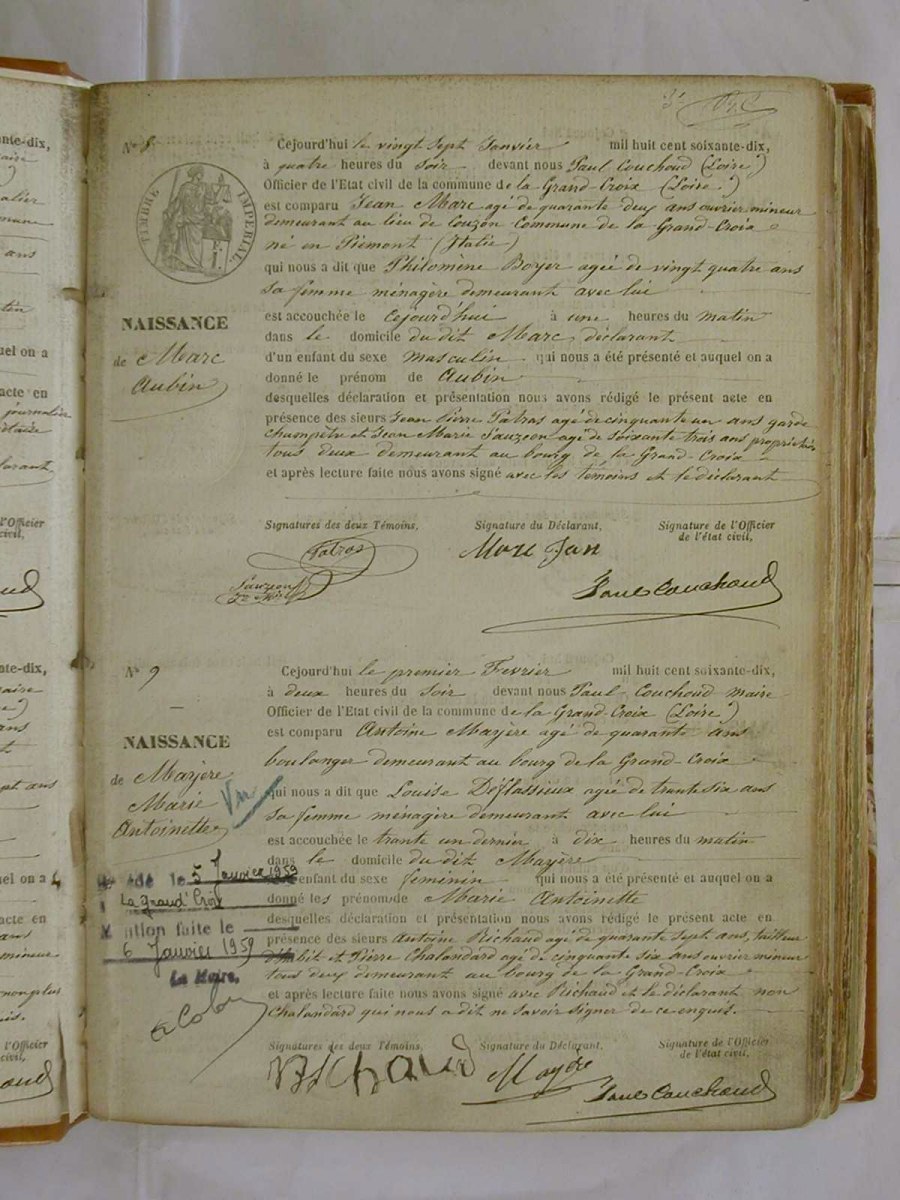 N° 8
TIMBRE IMPERIAL
NAISSANCE
de Marc
Aubin
Cejourd'hui le vingt Sept Janvier mil huit cent soixante-dix,
à quatre heures du Soir devant nous Paul Couchoud (Loire)
Officier de l'Etat civil de la commune de la Grand-Croix (Loire)
est comparu Jean Marc agé de quarante deux ans ouvrier mineur
demeurant au lieu de Couzon Commune de la Grand-Croix
né en Piemont (Italie)
qui nous a dit que Philomène Boyer agée de vingt quatre ans
Sa femme ménagère demeurant avec lui
est accouchée le Cejourd'hui à une heures du matin
dans le domicile du dit Marc déclarant
d'un enfant du sexe masculin qui nous a été présenté et auquel on a
donné le prénom de Aubin
desquelles déclaration et présentation nous avons rédigé le présent acte en
présence des sieurs Jean Pierre Patras agé de cinquante un ans garde
champêtre et Jean Marie Sauzéon agé de Soixante trois ans propriétre
tous deux demeurant au bourg de la Grand-Croix
et après lecture faite nous avons signé avec les témoins et le déclarant
Signatures des deux Témoins, Signature du Déclarant, Signature de l'Officier
de l'état civil,
Patras Marc Jan
Sauzeon Paul Couchoud
N° 9
NAISSANCE
de Mayère
Marie
Antoinette
Vu
Cejourd'hui le premier Fevrier mil huit cent soixante-dix,
à deux heures du Soir devant nous Paul Couchoud maire
Officier de l'Etat civil de la commune de la Grand-Croix (Loire)
est comparu Antoine Mayère agé de quarante ans
boulanger demeurant au bourg de la Grand-Croix
qui nous a dit que Louise Déflassieux agée de trante six ans
Sa femme ménagère demeurant avec lui
est accouchée le trante un dernier à dix heures du matin
dans le domicile du dit Mayère
enfant du sexe feminin qui nous a été présenté et auquel on a
donné les prénoms de Marie Antoinette
desquelles déclaration et présentation nous avons rédigé le présent acte en
présence des sieurs Antoine Richaud agé de quarante sept ans, tailleur
d'habit et Pierre Chalandard agé de cinquante six ans ouvrier mineur
tous deux demeurant au bourg de la Grand-Croix
et après lecture faite nous avons signé avec Richaud et le déclarant non
Chalandard qui nous a dit ne Savoir Signer de ce enquis.
édé le 5 Janvier 1959
La Grand'Croix
ntion faite le
6 Janvier 1959
Le Maire,
Signatures des deux Témoins, Signature du Déclarant, Signature de l'Officier
de l'état civil,
RIChaud Mayère Paul Couchoud